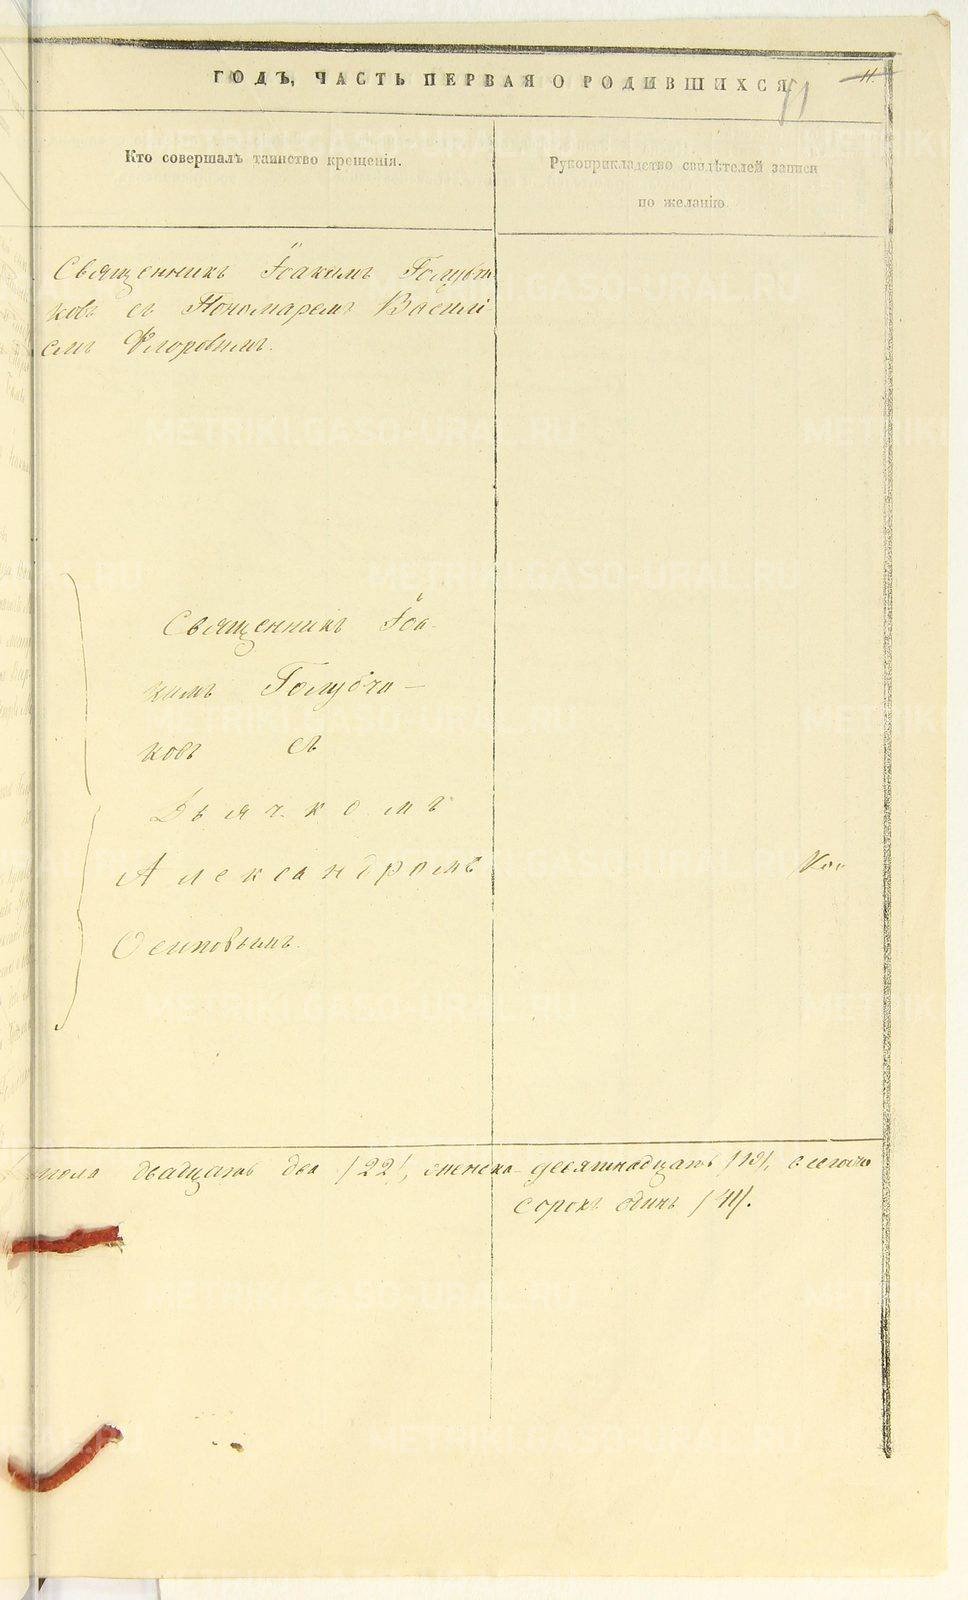 ГОДЪ, ЧАСТЬ ПЕРВАЯ О РОДИВШИХСЯ
11
Кто совершалъ таинство крещенія.
Рукоприкладство свидѣтелей записи
по желанію.
Священникъ Іоакимъ
ковъ съ Пономаремъ Василі
емъ Флоровымъ.
Священникъ Іоа-
кимъ Голубчи-
ковъ съ
Дьячкомъ
Александромъ
Осиповымъ.
пола двадцать два /22/, женска девятнадцать /19/, а всего
сорокъ одинъ /41/.
METRIKI.GASO-URAL.RU